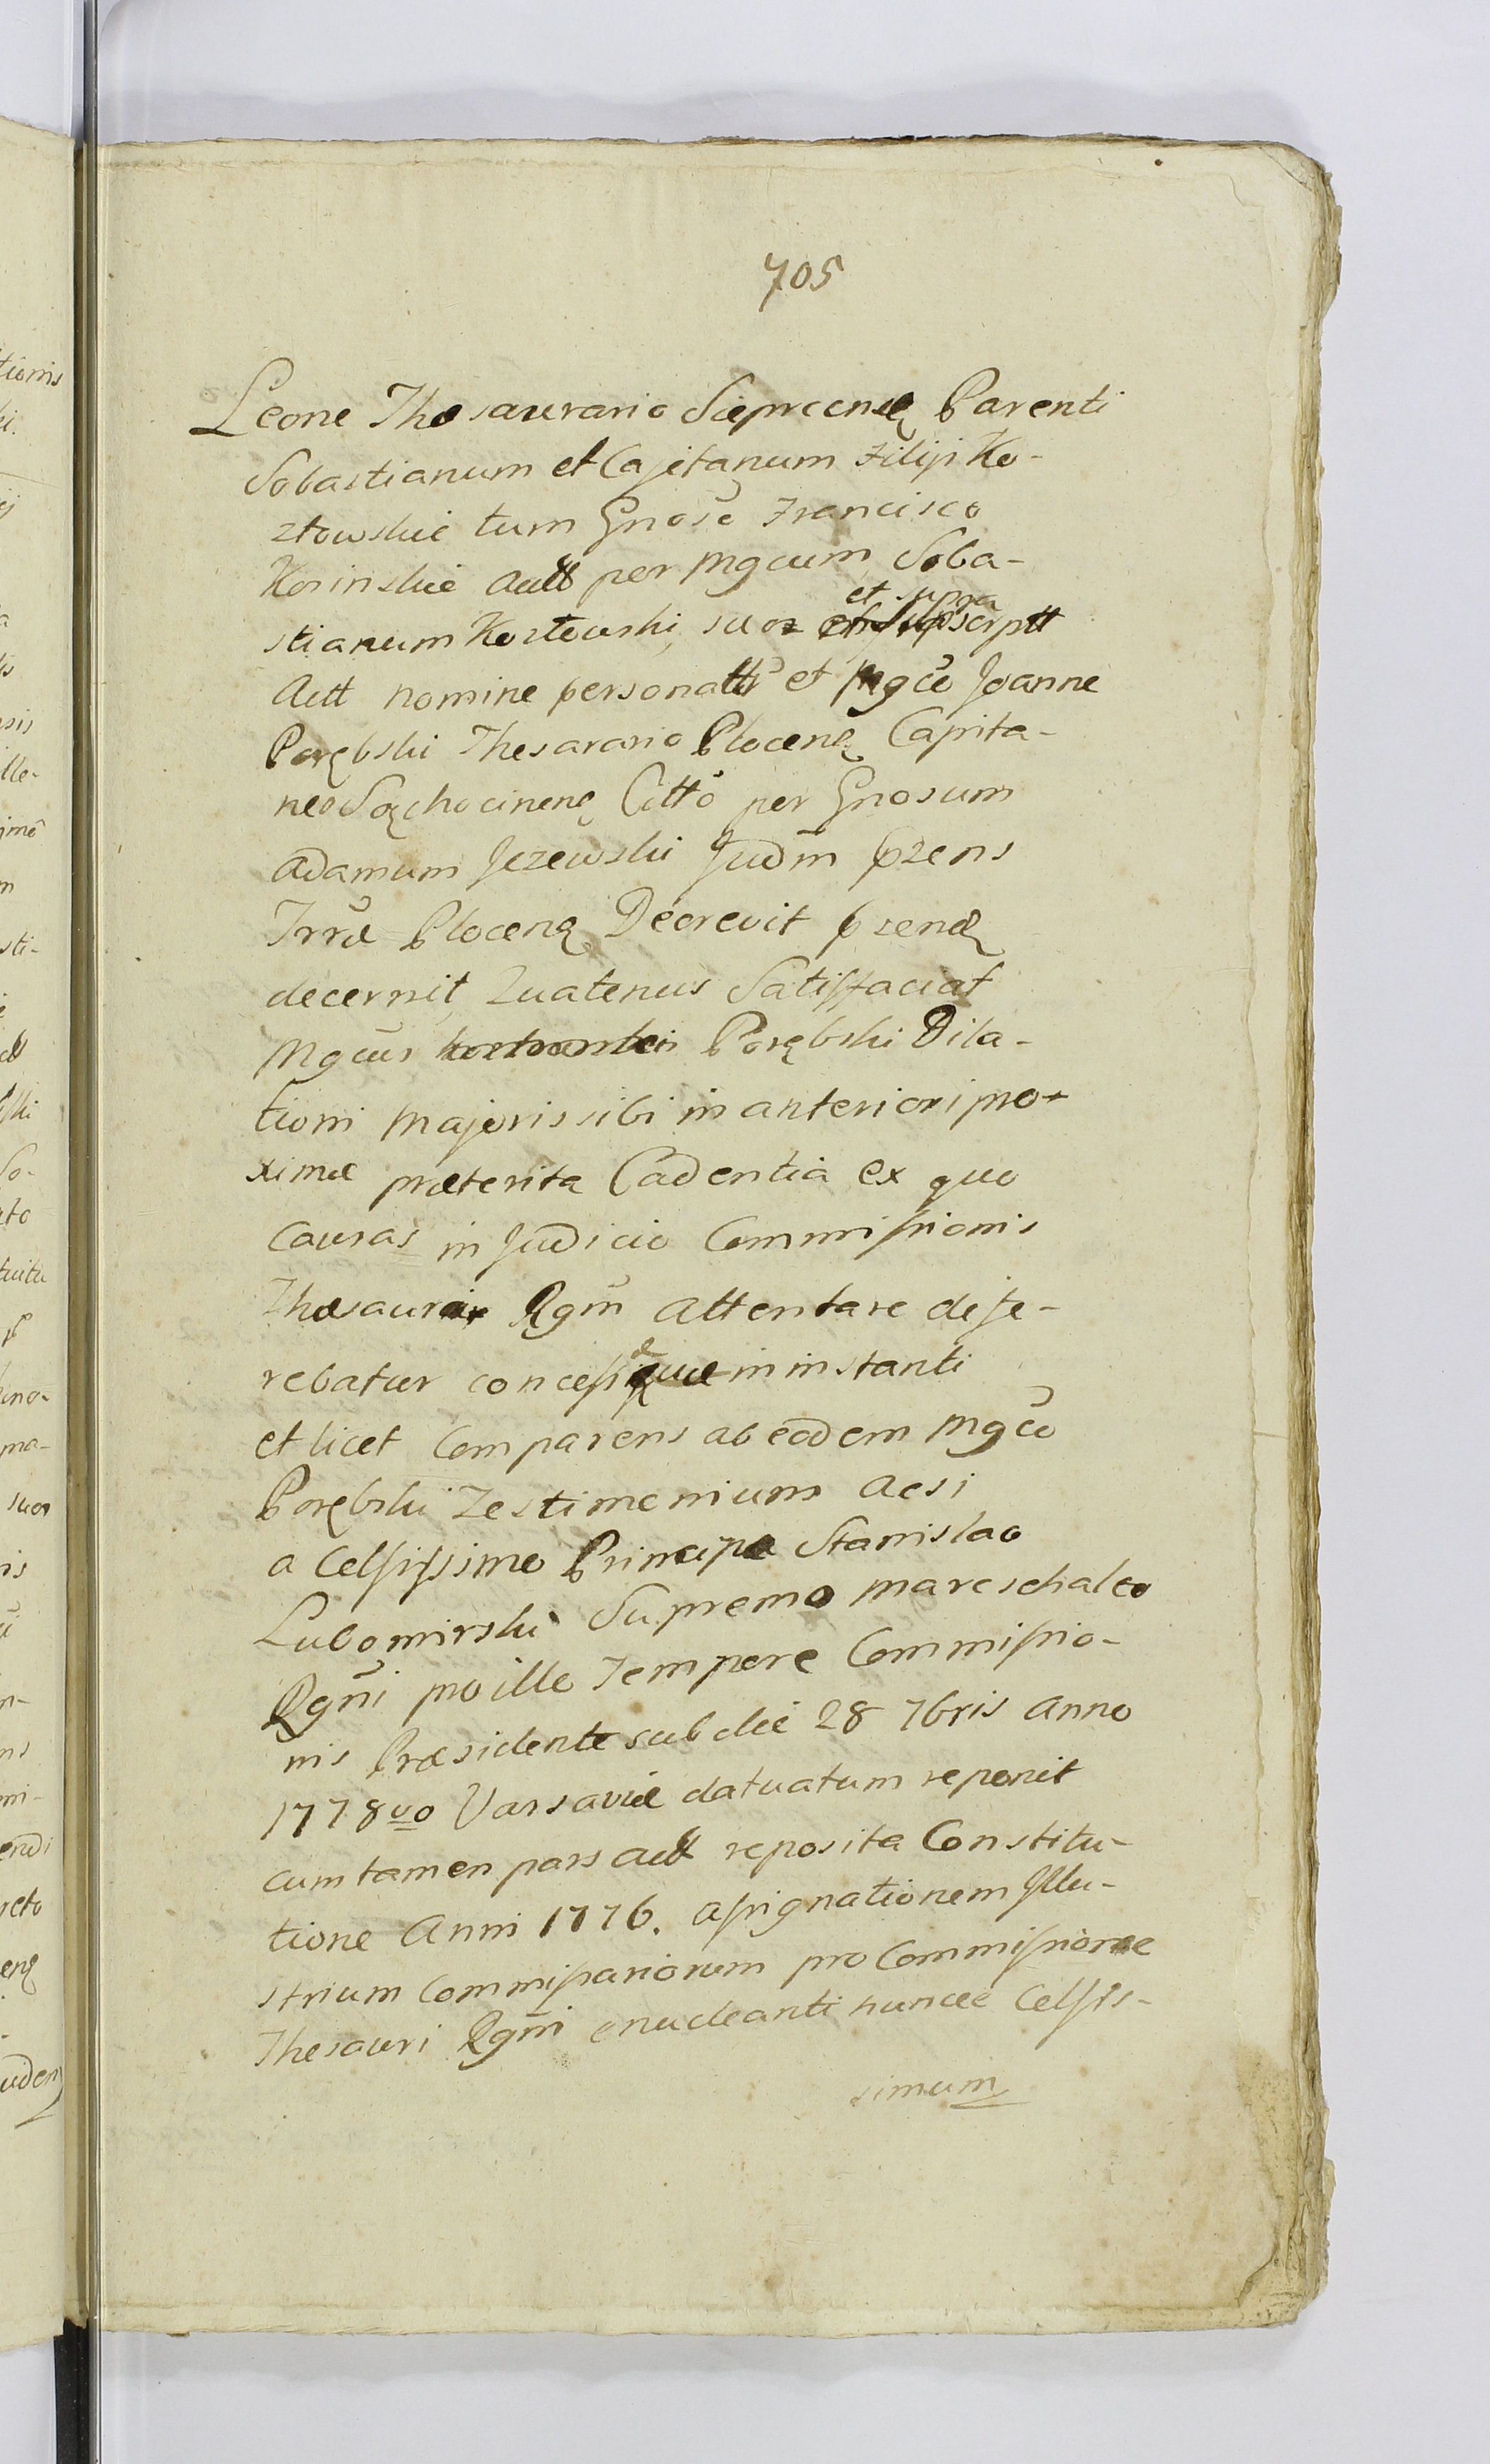 705
Leone Thesaurario Sieprcensę Parenti
Sobastianum et Cajetanum Filijs Ko-
ztowskie tum Gnoso Francisco
Kosinskie Actt per Mgcum Soba-
stianum Koztowski, suo et supra scrptt
Actt nomine personattr et Mgco Joanne
Porębski Thesarario Plocenę Capita-
neo Sochocinenę Citto per Gnosum
Adamum Jezewski Judm pzens
Trrae Plocenę Decrevit pzenę
decernit, Quatenus Satisfaciat
Mgcus Porębski Dila-
tioni Majoris sibi in anteriori pro-
ximae praeterita Cadentia ex quo
causas in Judicio Commissionis
Thesauri Rgni attentare dise-
rebatur concessae in instanti
et licet Comparens ab eodem Mgco
Porębski Testimonium acsi
a Celsissimo Principe Stanislao
Lubomirski Supremo Mareschalco
Rgni pro illo Tempore Commissio-
nis Praesidente sub die 28 7bris Anno
1778vo Varsaviae datuatum reponit
cum tamen pars actt reposita Constitu-
tione Anni 1776. assignationem Illu-
strium Commissariorum pro Commissione
Thesauri Rgni enucleanti huncce Celsis-
simum
tionis
sis
lle-
sti-
So-
tuitu
ma-
suor
is
ns
mi-